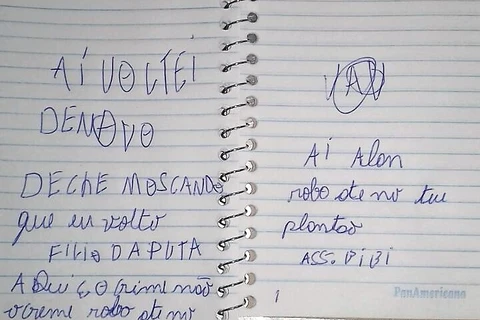 AÍ VOLTEI
DENOVO
DECHE MOSCANDO
que eu volto
FILIO DAPUTA
AQUi ÇO crime não
o creme robo ate no
Aí Alan
robo ate no teu
plantao
ASS. BIBI
1
PanAmericana